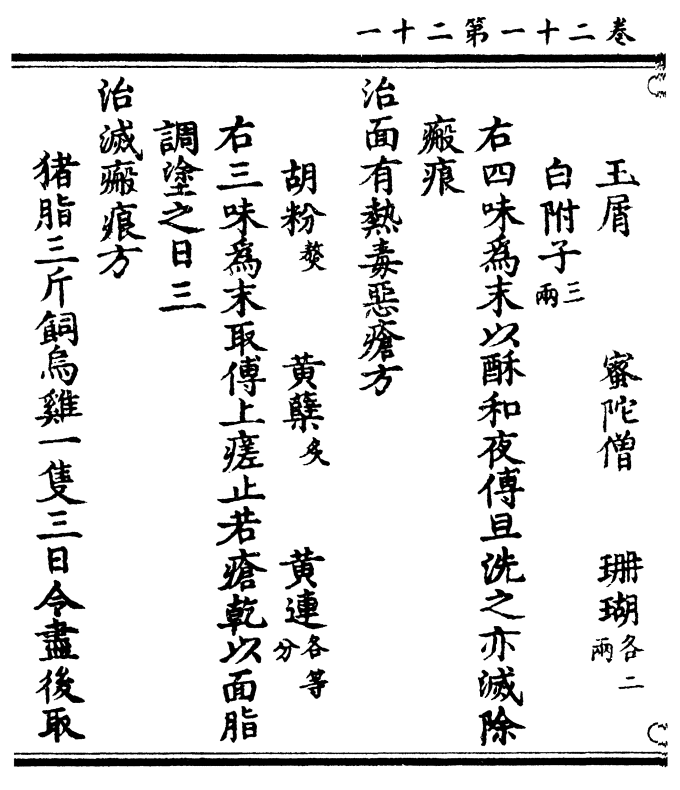 卷二十一第二十一
玉屑 蜜陀僧 珊瑚各二兩
白附子三兩
右四味爲末以酥和夜傅旦洗之亦滅除
瘢痕
治面有熱毒惡瘡方
胡粉熬 黄蘗炙 黄連各等分
右三味爲末取傅上瘥止若瘡乾以面脂
調塗之日三
治滅瘢痕方
猪脂三斤飼烏雞一隻三日令盡後取